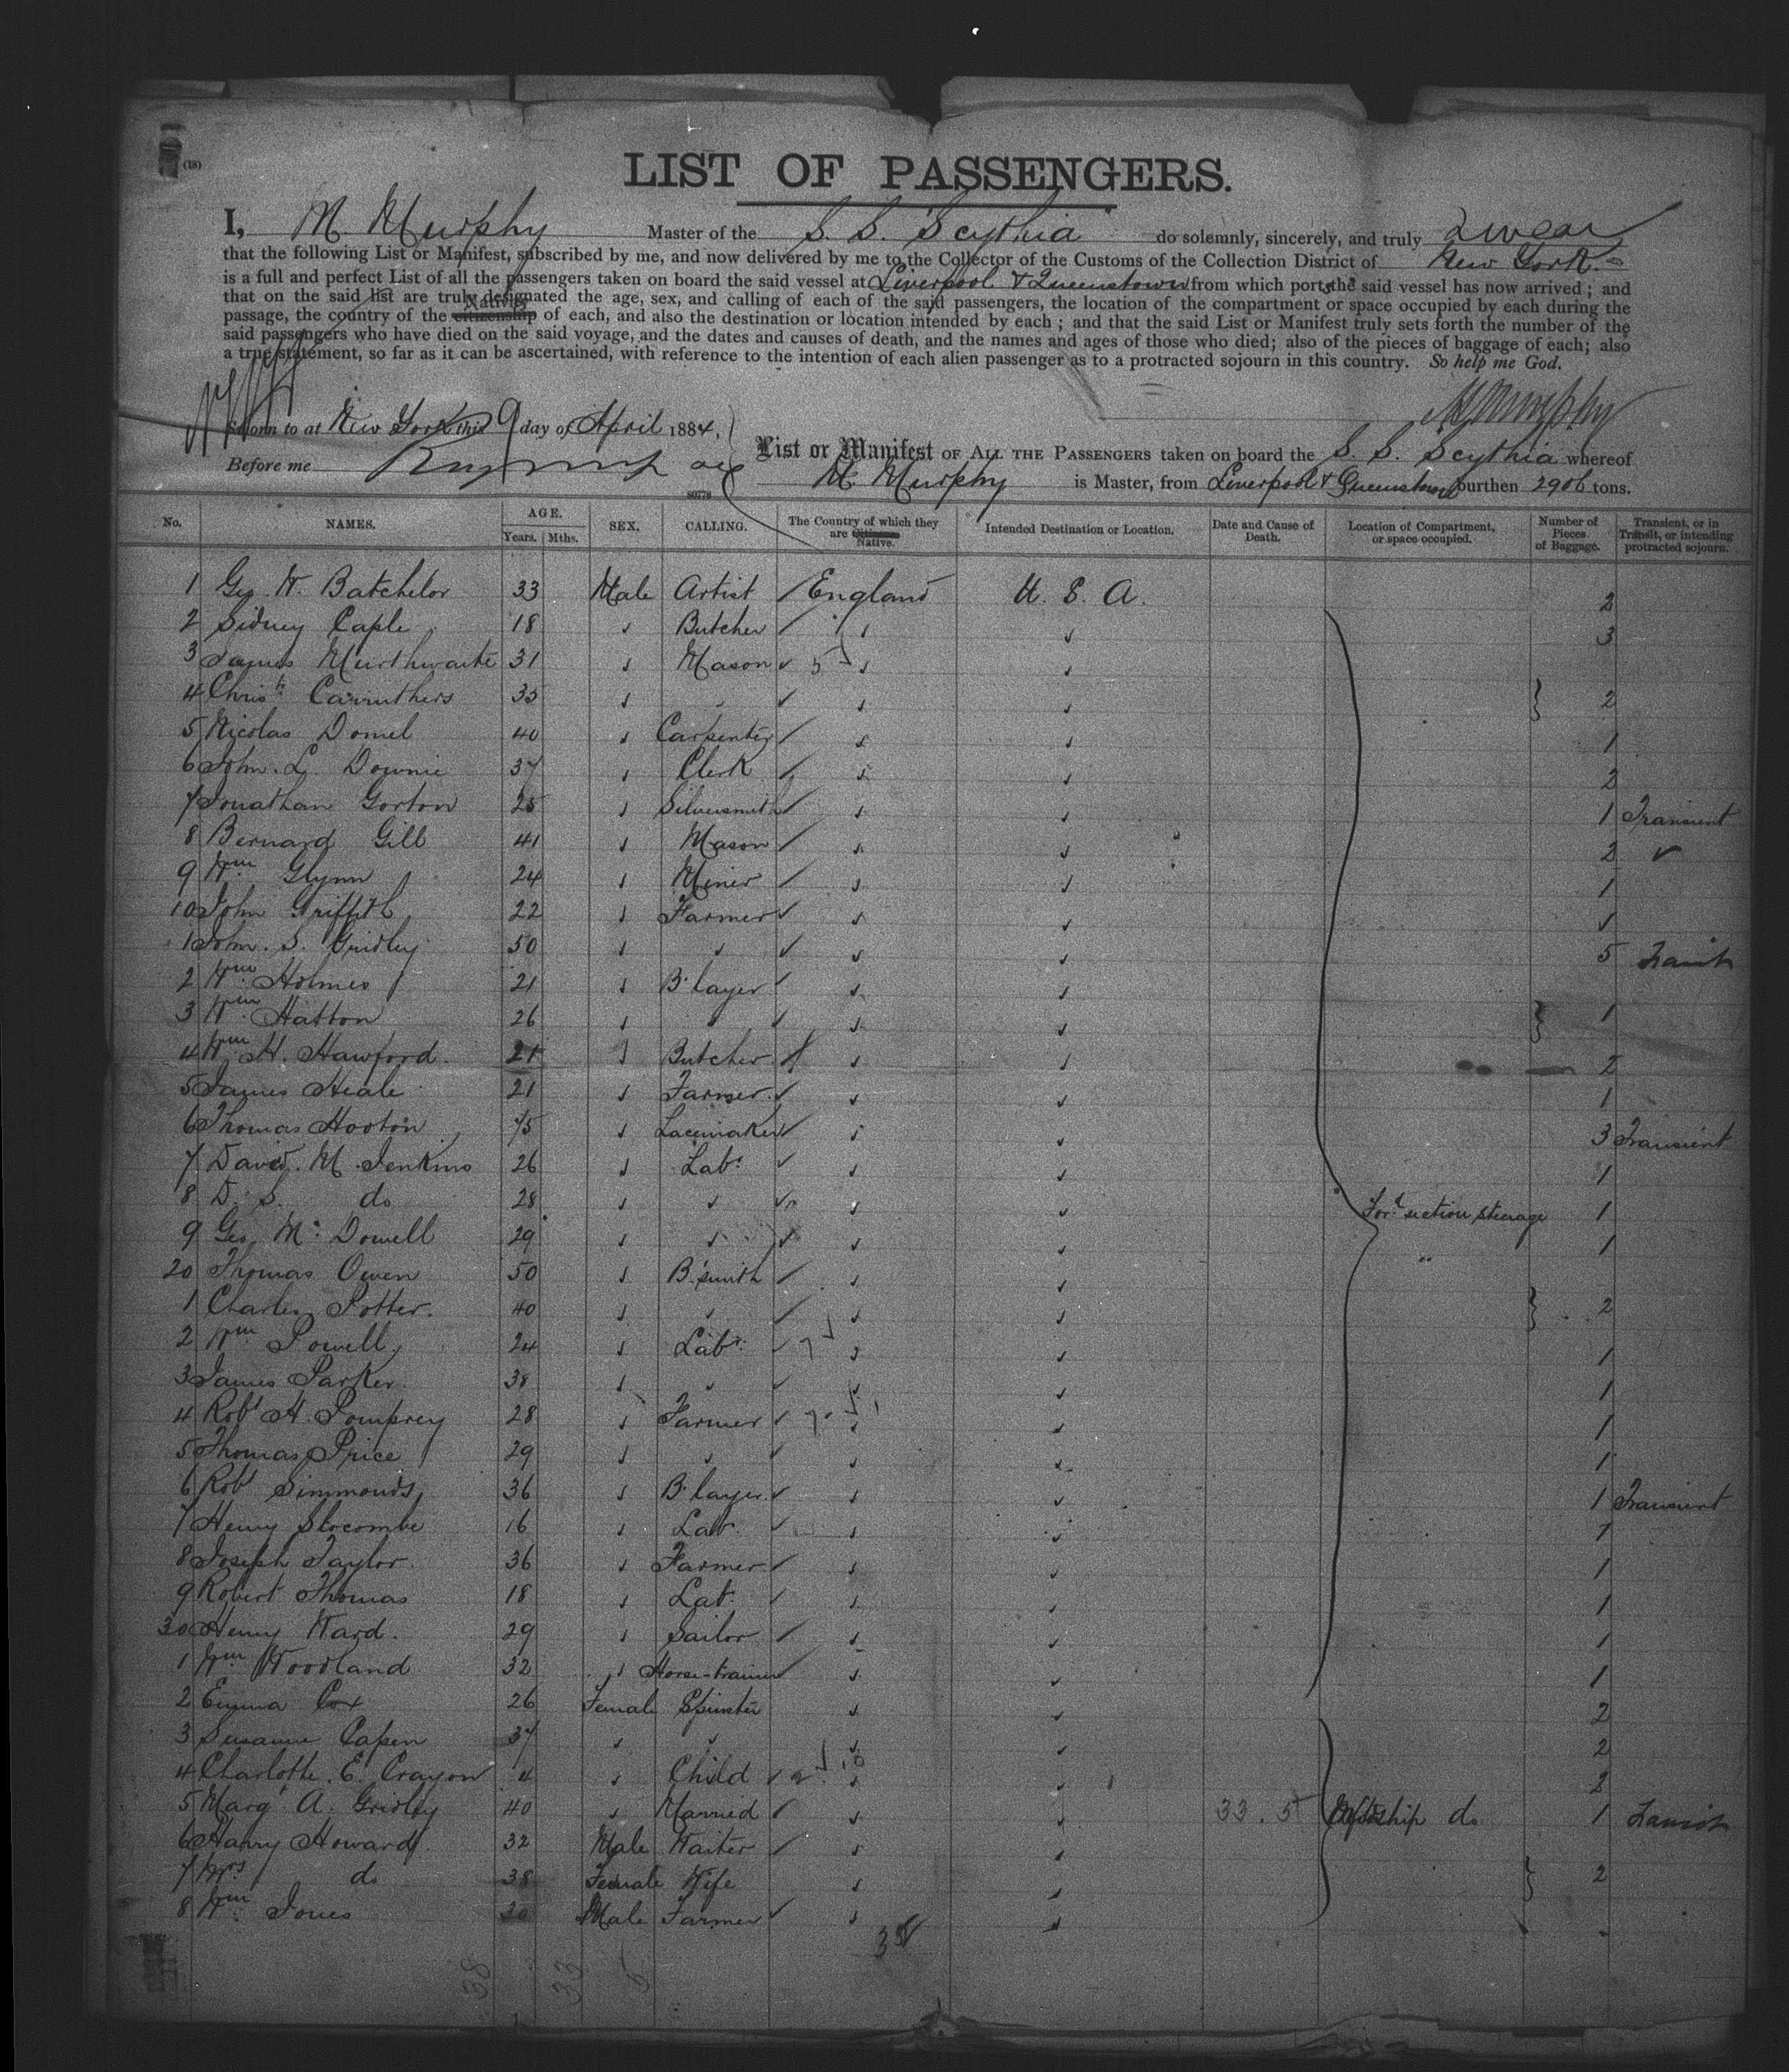 (18)
LIST OF PASSENGERS.
I, M. Murphy Master of the S. S. Scythia do solemnly, sincerely, and truly Swear
that the following List or Manifest, subscribed by me, and now delivered by me to the Collector of the Customs of the Collection District of New York.
is a full and perfect List of all the passengers taken on board the said vessel at Liverpool & Queenstown from which ports the said vessel has now arrived; and
that on the said list are truly designated the age, sex, and calling of each of the said passengers, the location of the compartment or space occupied by each during the
Nativity
passage, the country of the citizenship of each, and also the destination or location intended by each; and that the said List or Manifest truly sets forth the number of the
said passengers who have died on the said voyage, and the dates and causes of death, and the names and ages of those who died; also of the pieces of baggage of each; also
a true statement, so far as it can be ascertained, with reference to the intention of each alien passenger as to a protracted sojourn in this country. So help me God.
M Murphy
Sworn to at New York this 9 day of April 1884,
Before me
List or Manifest OF ALL THE PASSENGERS taken on board the S. S. Scythia whereof
M. Murphy is Master, from Liverpool & Queenstown burthen 2906 tons.
80778
No. NAMES. AGE. Years. Mths. SEX. CALLING. The Country of which they are Citizens Native. Intended Destination or Location. Date and Cause of Death. Location of Compartment, or space occupied. Number of Pieces of Baggage. Transient, or in Transit, or intending protracted sojourn.
1 Geo. W. Batchelor 33 Male Artist England U. S. A. 2
2 Sidney Caple 18 Butcher 3
3 James Murthwaite 31 Mason
4 Christr. Carruthers 35 2
5 Nicolas Domel 40 Carpenter 1
6 John. L. Downie 37 Clerk 2
7 Jonathan Gorton 25 Silversmith 1 Transient
8 Bernard Gill 41 Mason 2
9 Wm. Glynn 24 Miner 1
10 John Griffith 22 Farmer 1
1 John. S. Gridley 50 5 Transit
2 Wm. Holmes 21 B. layer
3 Wm. Hatton 26 1
4 Wm. H. Hawford 21 Butcher 2
5 James Heale 21 Farmer 1
6 Thomas Hooton 45 Lacemaker 3 Transient
7 David. M. Jenkins 26 Labr. 1
8 D. S. do 28 Ford. section steerage 1
9 Geo. Mc. Dowell 29 " 1
20 Thomas Owen 50 B. smith
1 Charles Potter. 40 2
2 Wm. Powell 24 Labr. 1
3 James Parker 38 1
4 Robt. H. Pomprey 28 Farmer 1
5 Thomas Price 29 1
6 Robt Simmonds 36 B. layer 1 Transient
7 Henry Slocombe 16 Lab. 1
8 Joseph Taylor 36 Farmer 1
9 Robert Thomas 18 Lab. 1
30 Henry Ward. 29 Sailor 1
1 Wm. Woodland 32 Horse-trainer 1
2 Emma Cox 26 Female Spinster 2
3 Susanne Capen 37 2
4 Charlotte. E. Crayon 4 Child 2
5 Margt. A. Gridley 40 Married 33. 5 do 1 Transit
6 Harry Howard 32 Male Waiter
7 Mrs. do 38 Female Wife 2
8 Wm. Jones 30 Male Farmer
38
38 33 5